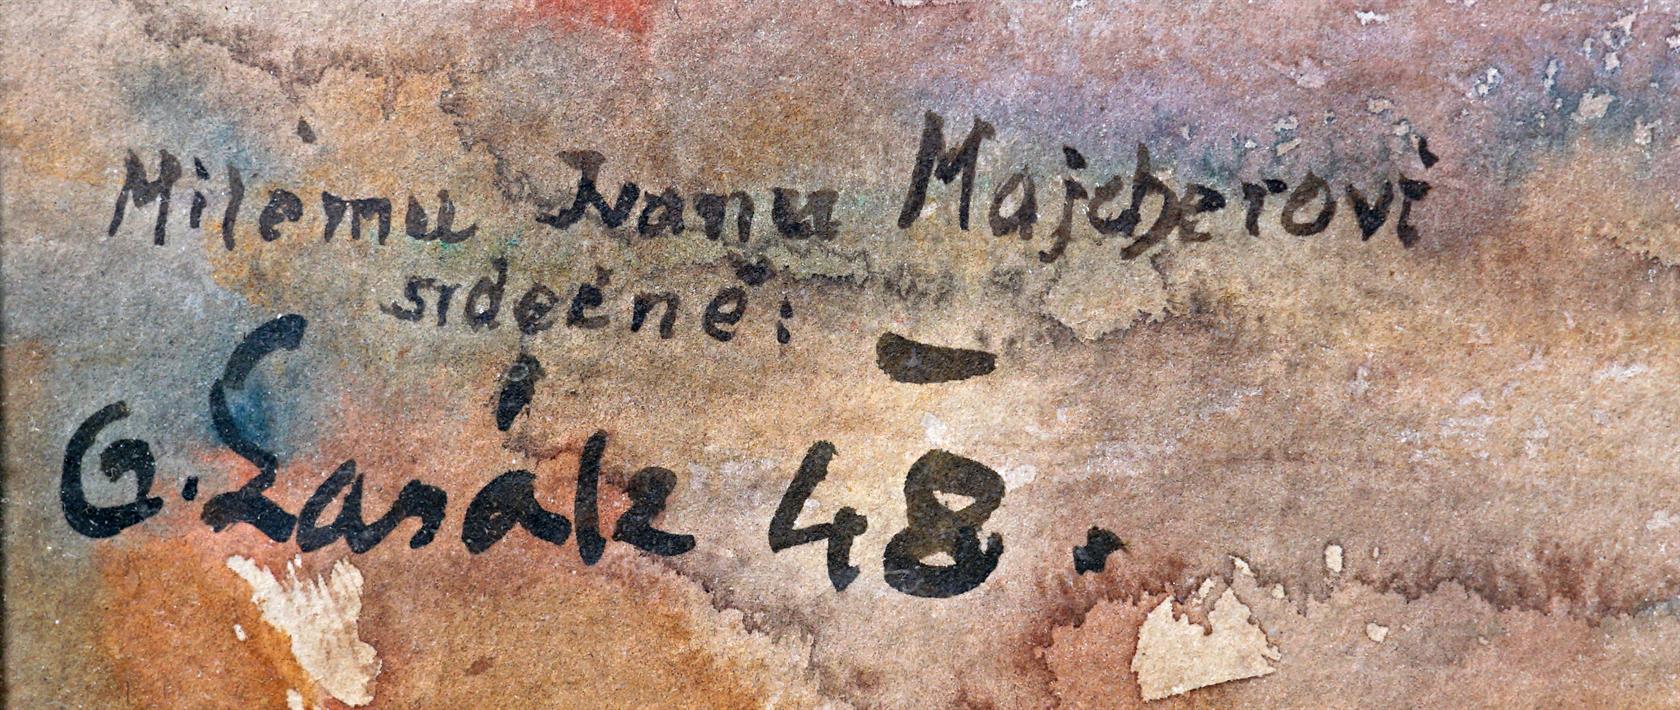 Milému Ivanu Majcherovi
srdečně:
G. Lasák 48.